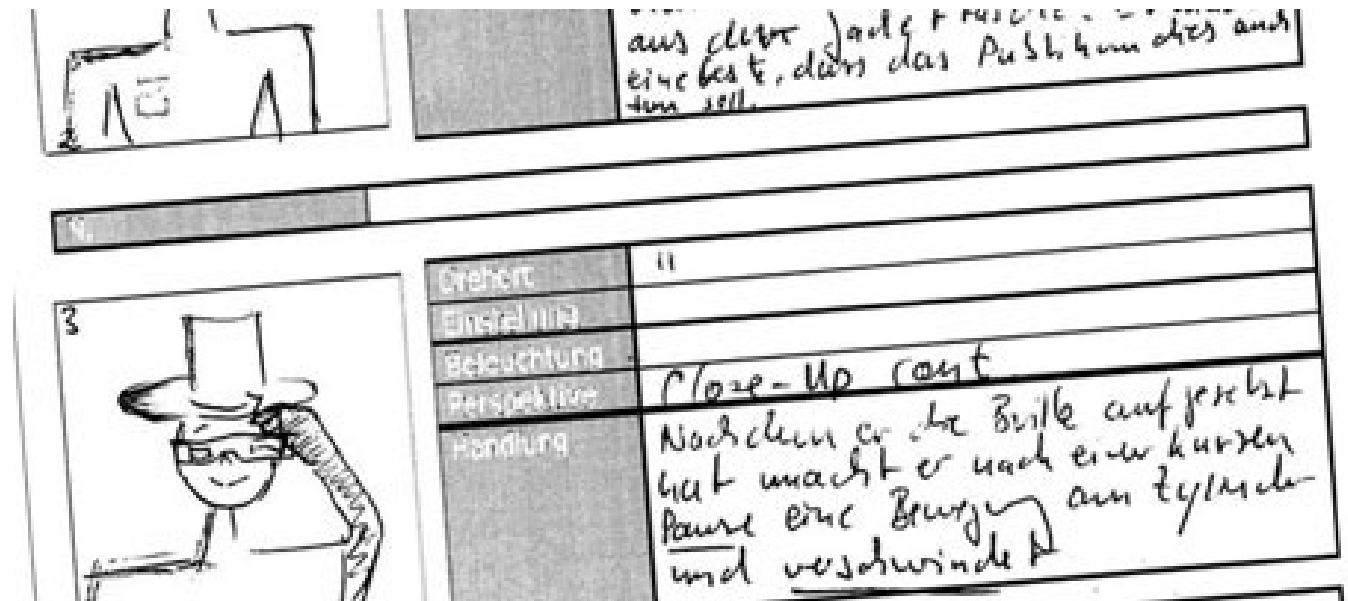 aus
eine Geste, dass das Publikum dies auch
tun soll.
2
N.
Drehort "
Einstellung
Beleuchtung
Perspektive Close-Up cont
3
Handlung Nachdem er die Brille aufgesetzt
hat macht er nach einer kurzen
Pause eine Bewegung am Zylinder
und verschwindet